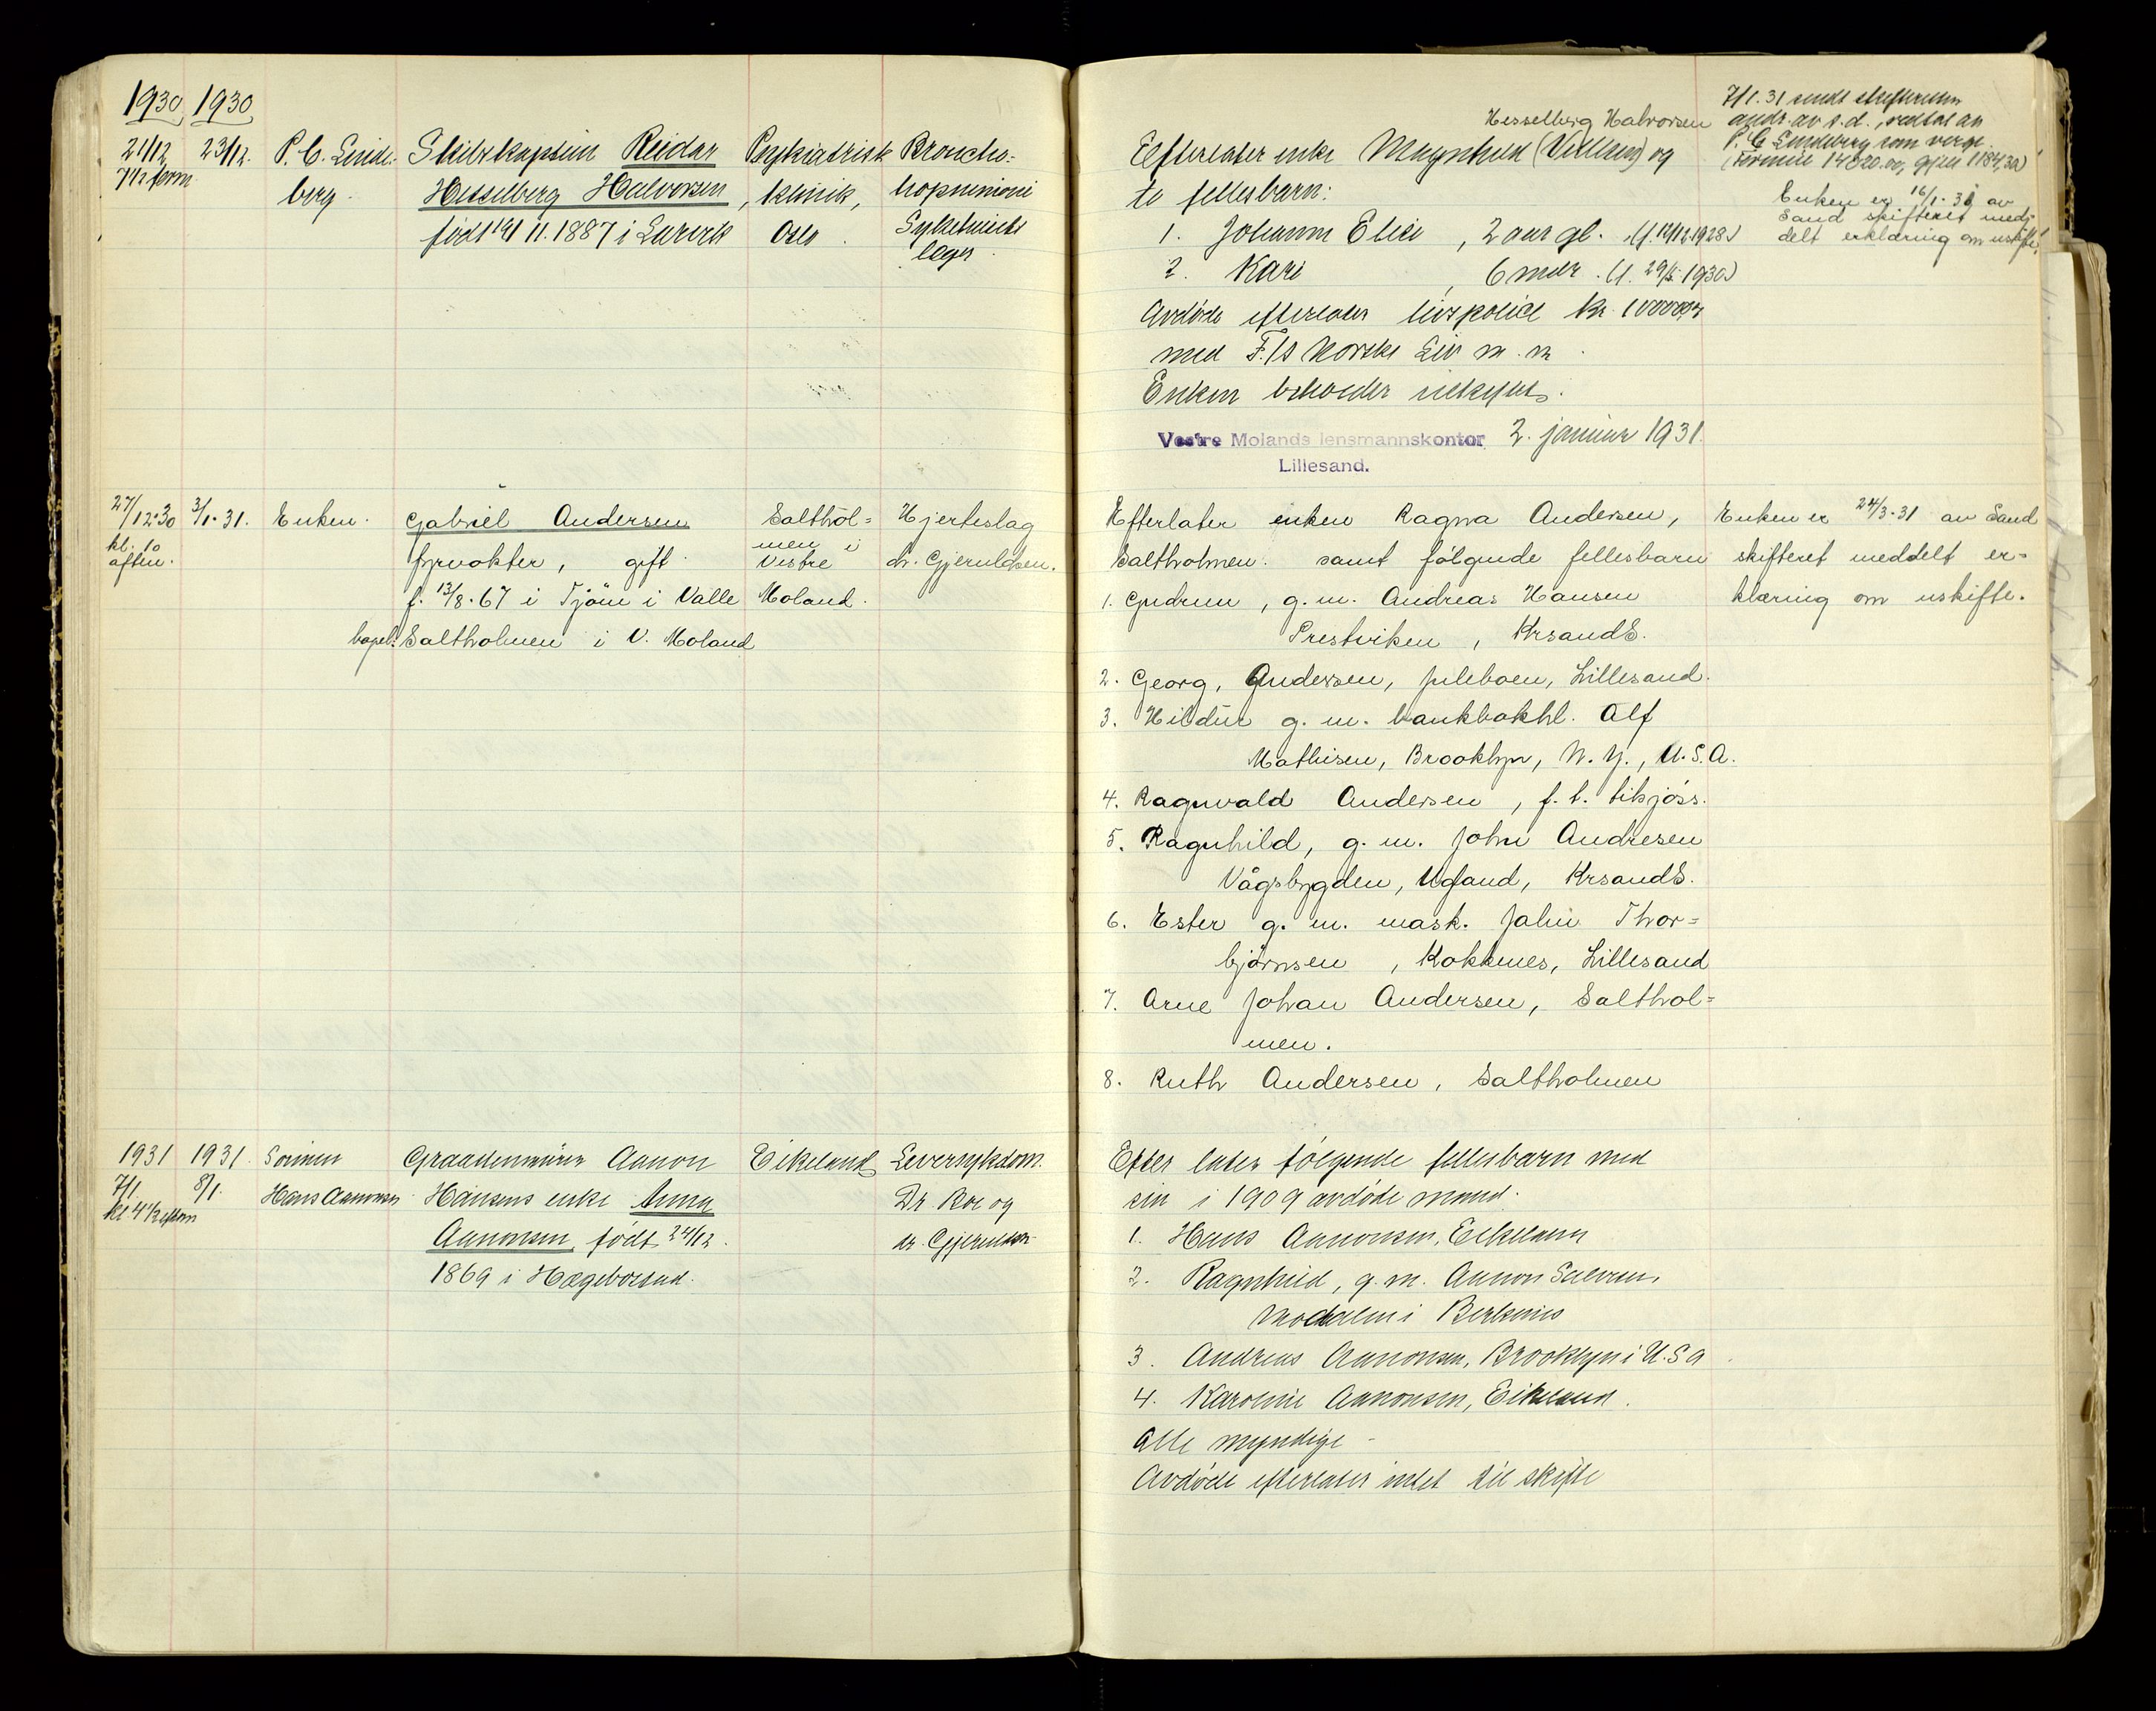 1930 1930
21/12 23/12. P. C. Linde- Skibskaptein Reidar Psykiatrisk Broncho-
7 1/2 form berg. Hesselberg Halvorsen, klinik, hopnimoni
født 19/11. 1887 i Larvik Oslo. Sykehusets
læge.
27/12-30 3/1-31. Enken. Gabriel Andersen Salthol= Hjerteslag
kl. 10 fyrvokter, gift. men i Vestre dr. Gjeruldsen.
aften. f. 13/8-67 i Tjöm i Valle Moland.
bopel: Saltholmen i V. Moland
1931 1931. Sønnen Graastensmurer Aanon Eikeland Leversykdom.
7/1. 8/1. Hans Aanonsen Hansens enke Anna Dr. Roe og
kl 4 1/2 efterm Aanonsen, født 24/12. dr. Gjeruldsen
1869 i Hægebostad.
Hesselberg Halvorsen
Efterlater enke Magnhild og
to fellesbarn:
1. Johanne Elise, 2 aar gl. (f. 14/12 1928)
2. Kari, 6 mdr. (f. 29/5 1930)
Avdøde efterlater livspolice kr. 10000,00
med F./S Norske Liv m.m.
Enken beholder uskiftet.
Vestre Molands lensmannskontor 2. januar 1931.
Lillesand.
7/1.31 sendt skifteretten
andr. av s.d., vedtat av
P. C. Lindeberg som verge.
Enken er 16/1-31 av
Sand skifteret med-
delt erklæring om uskifte.
Efterlater enken Ragna Andersen,
Saltholmen. samt følgende fellesbarn
1. Gudrun, g.m. Andreas Hansen
Prestviken, KrsandS.
2. Georg, Andersen, Juleboen, Lillesand.
3. Hildur g.m. bankbokhl. Alf
Mathisen, Brooklyn, N.Y., U.S.A.
4. Ragnvald Andersen, f.t. tilsjøss.
5. Ragnhild, g.m. John Andresen
Vågsbygden, Ugland, KrsandS.
6. Ester g.m. mask. John Thor=
bjørnsen, Kokkenes, Lillesand
7. Arne Johan Andersen, Salthol=
men.
8. Ruth Andersen, Saltholmen
Enken er 24/3-31 av Sand
skifteret meddelt er=
klæring om uskifte.
Efterlater følgende fellesbarn med
sin i 1909 avdøde mand.
1. Hans Aanonsen, Eikeland
2. Ragnhild, g.m. Aanon Salvesen,
i Birkenes
3. Andreas Aanonsen, Brooklyn i U.S.A
4. Karoline Aanonsen, Eikeland.
Alle myndige
Avdøde efterlater intet til skifte